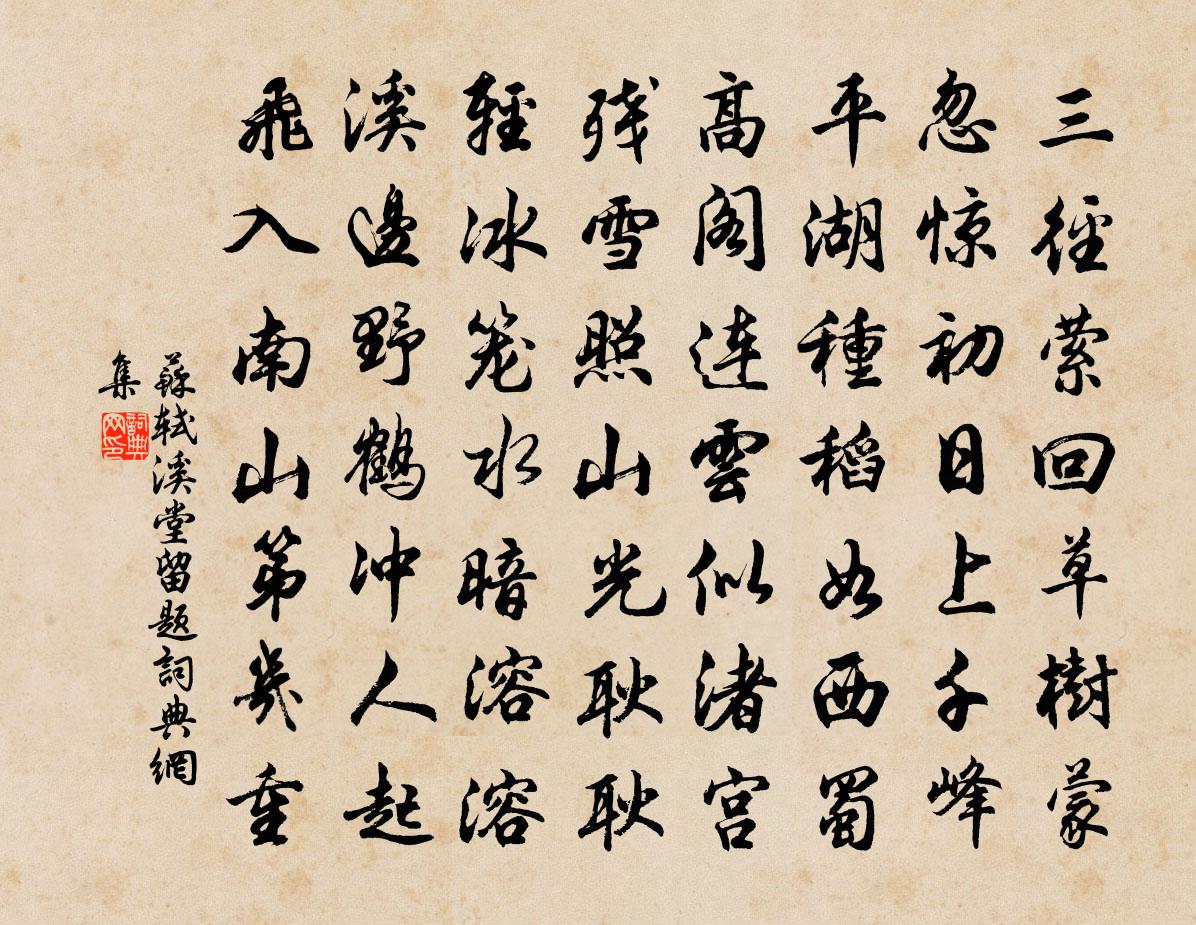 三徑縈回草樹蒙
忽惊初日上千峰
平湖種稻如西蜀
高阁連雲似渚宫
残雪照山光耿耿
輕冰笼水暗溶溶
溪邊野鹤冲人起
飛入南山第幾重
蘇軾溪堂留题詞典網
集
詞典网印